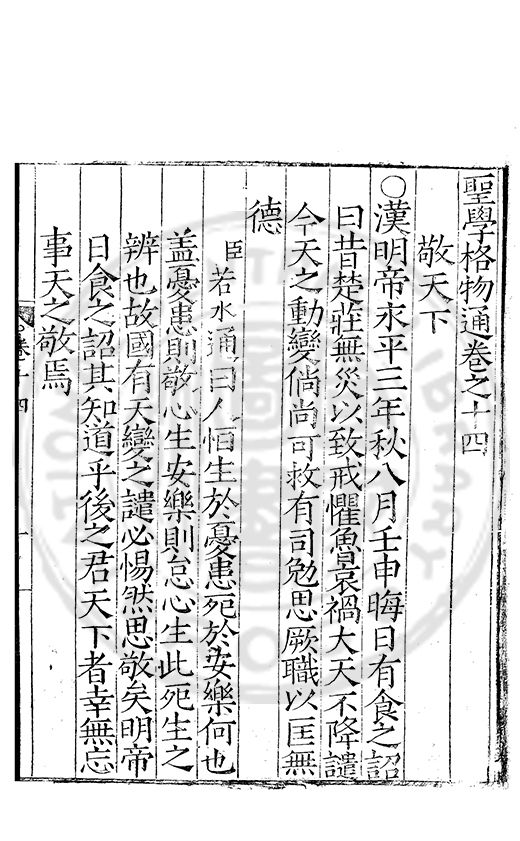 聖學格物通卷之十四
敬天下
○漢明帝永平三年秋八月壬申晦日有食之詔
曰昔楚莊無災以致戒懼魯哀禍大天不降譴
今天之動變倘尚可救有司勉思厥職以匡無
德
臣若水通曰人恒生於憂患死於安樂何也
蓋憂患則敬心生安樂則怠心生此死生之
辨也故國有天變之譴必惕然思敬矣明帝
日食之詔其知道乎後之君天下者幸無忘
事天之敬焉
卷十四
一